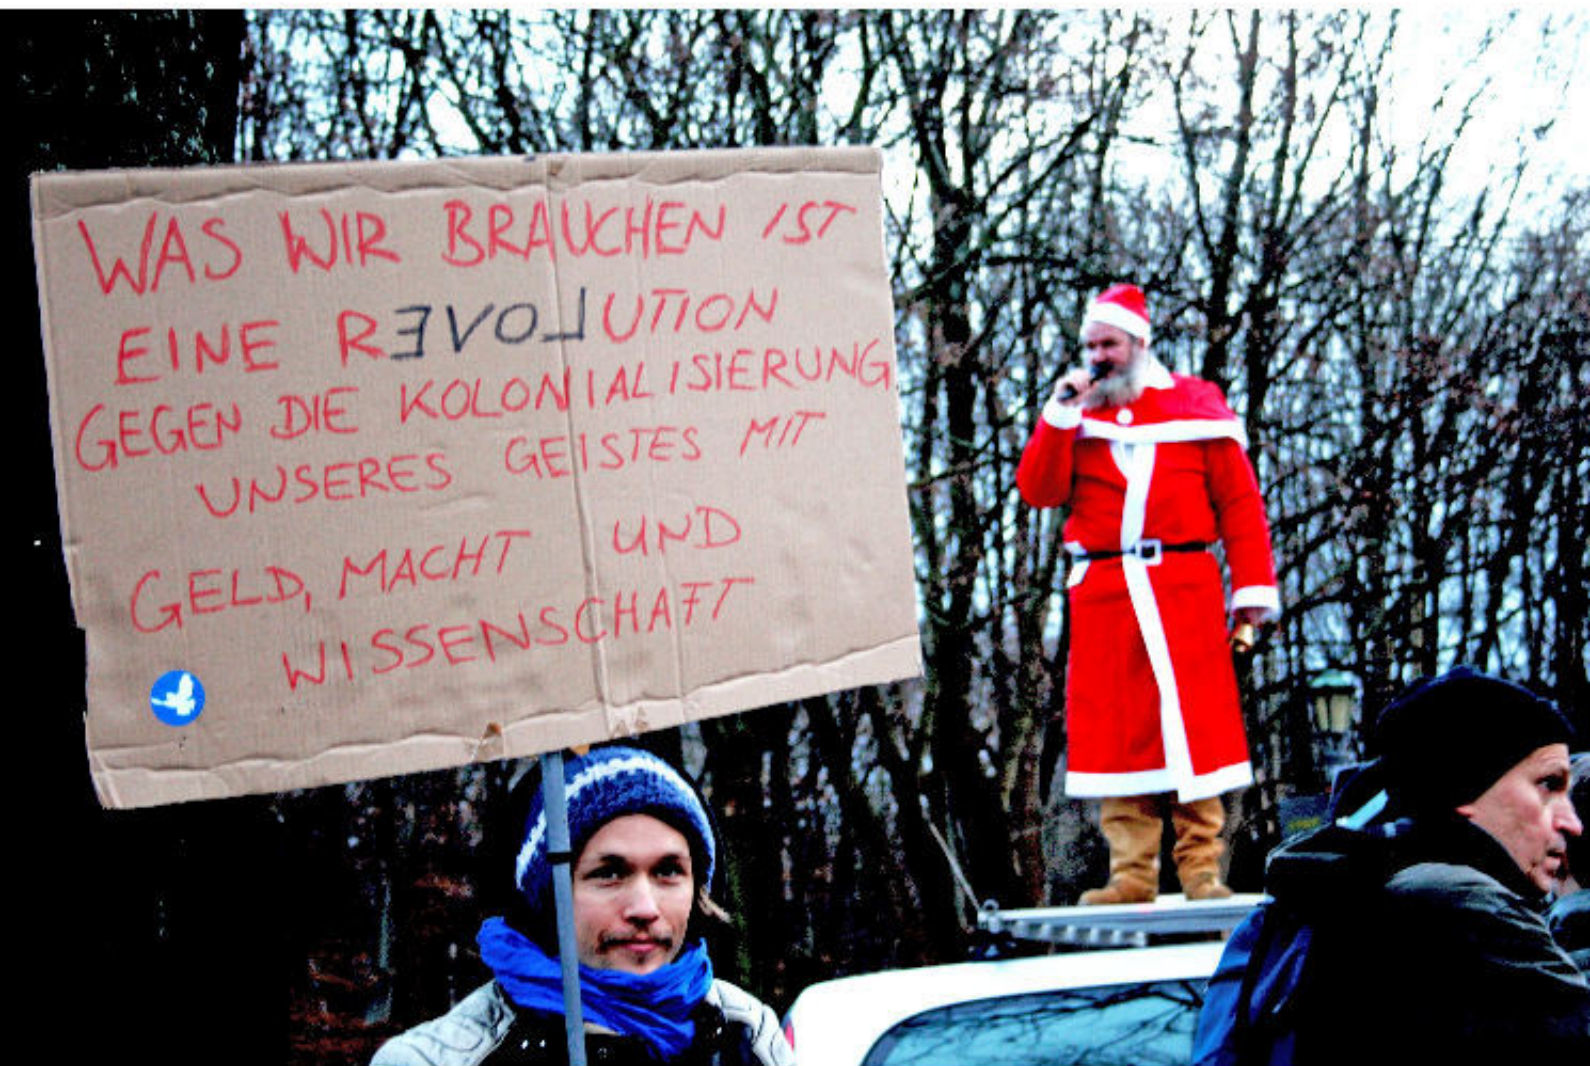 WAS WIR BRAUCHEN IST
EINE REVOLUTION
GEGEN DIE KOLONIALISIERUNG
UNSERES GEISTES MIT
GELD, MACHT UND
WISSENSCHAFT